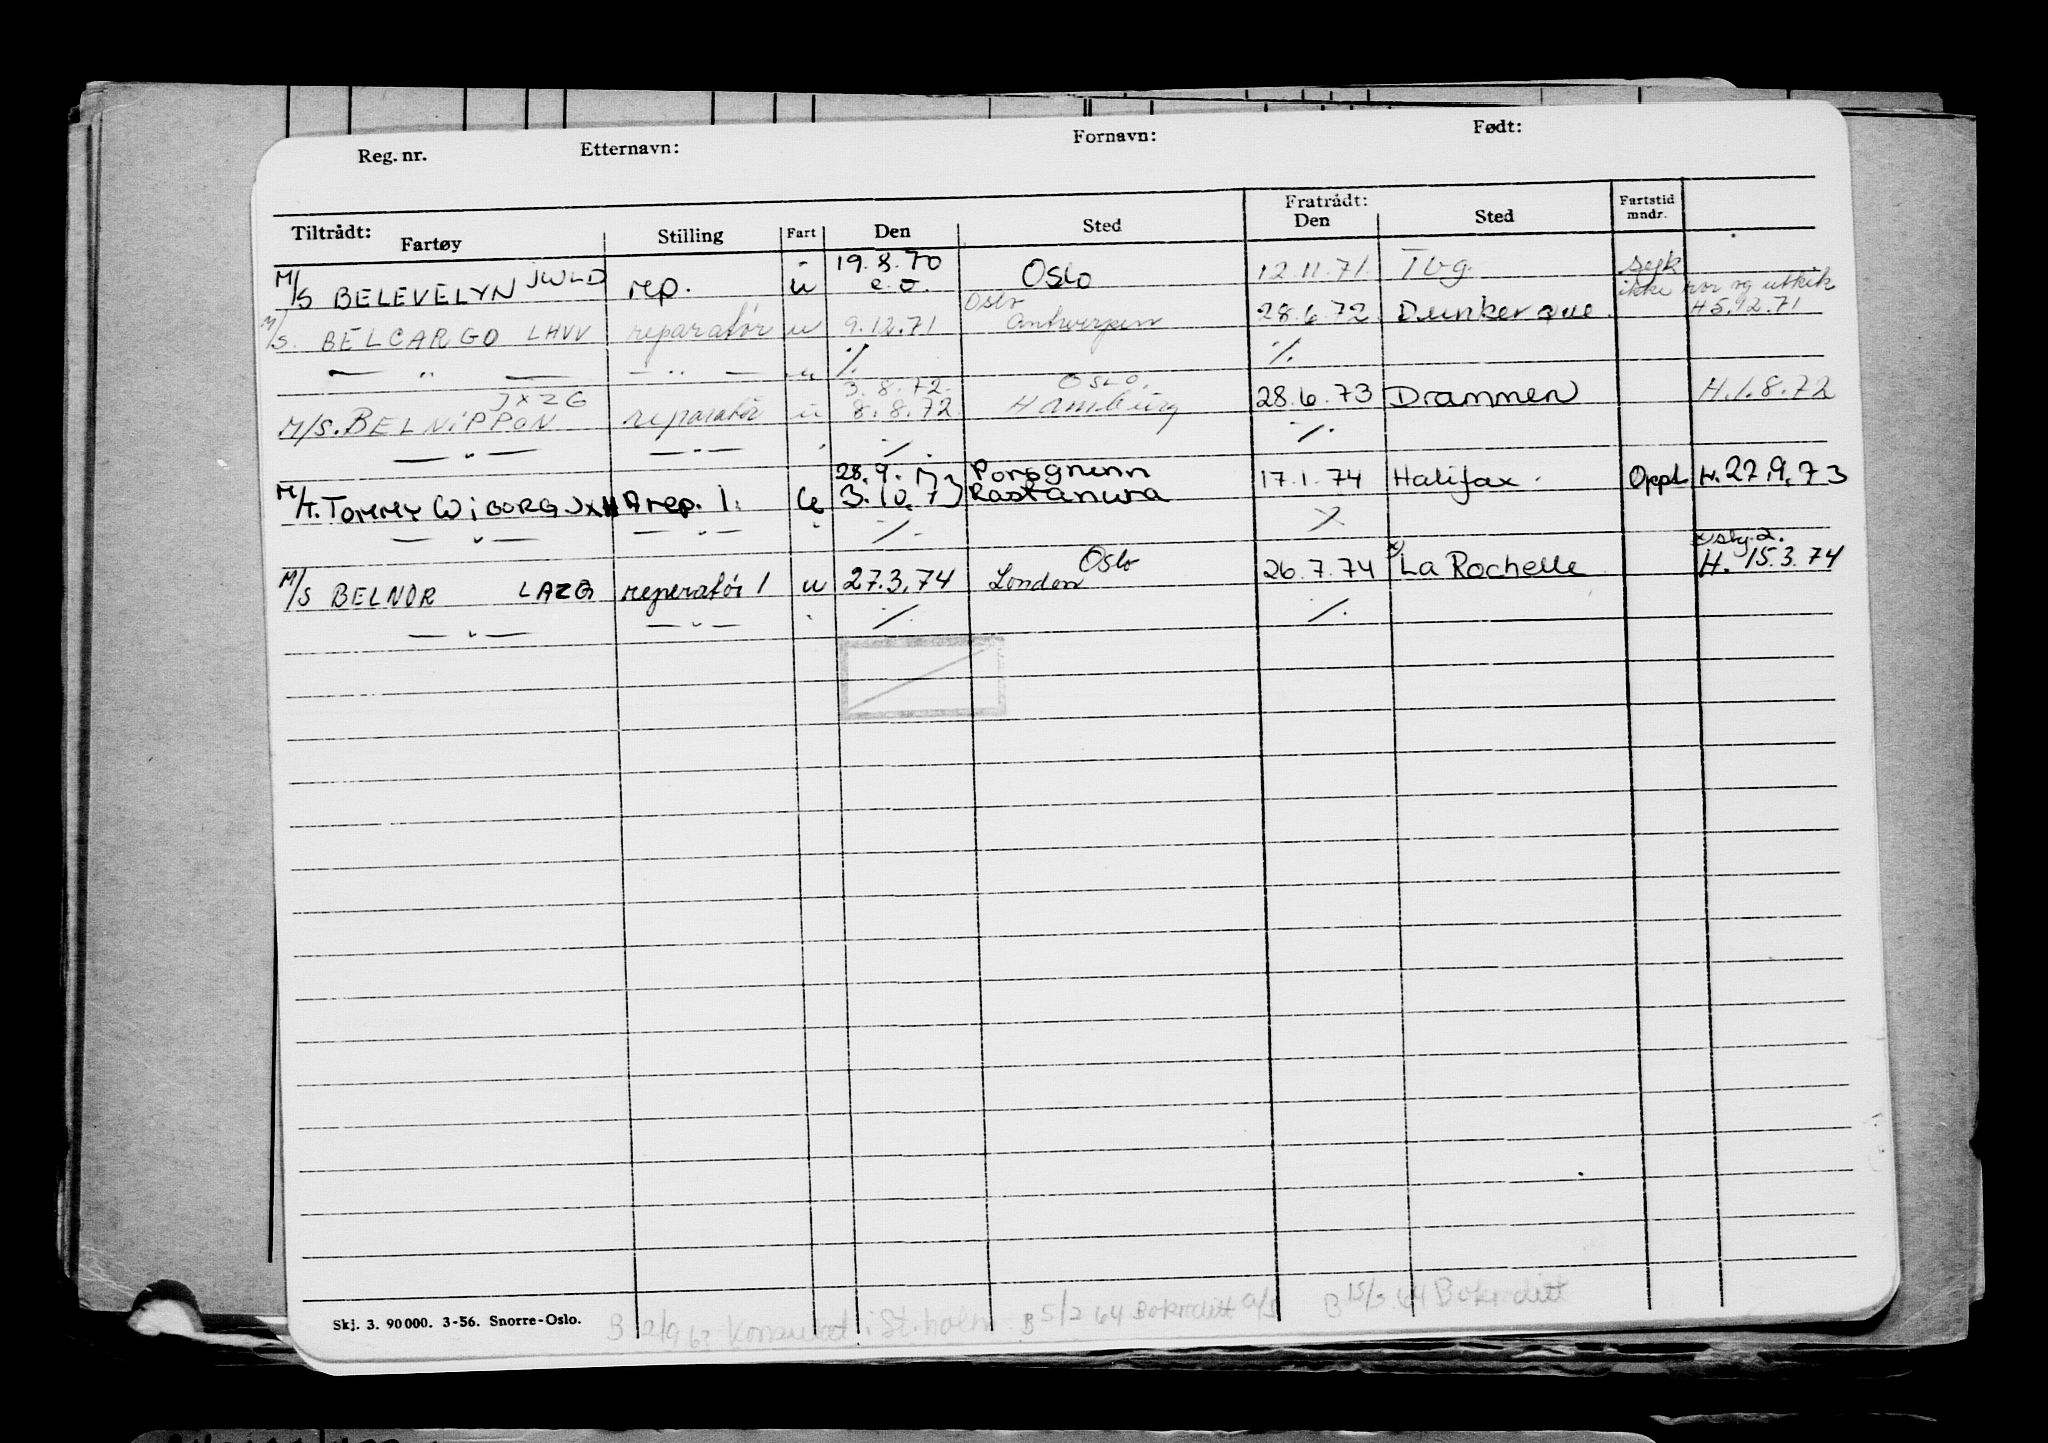 Reg. nr. Etternavn: Fornavn: Født:
Tiltrådt: Fratrådt: Fartstid
Fartøy Stilling Fart Den Sted Den Sted mndr.
M/S BELEVELYN JWLD rep. u 19.8.70 e.o. Oslo 12.11.71. Tbg. syk
ikke ror og utkik
Oslo
M/S. BELCARGO LHVV reparatør u 9.12.71 Antwerpen 28.6.72. Dunkerque. H 5.12.71
— " — — " — " ·/. ·/.
JXZG 3.8.72. OSLO.
M/S. BELNIPPON reparatør u 8.8.72. Hamburg 28.6.73 Drammen H. 1.8.72
— " — — " — ·/. ·/.
28.9.73 Porsgrunn
M/T. TOMMY WIBORG JXHA rep. 1. u 3.10.73 Rastanura 17.1.74 Halifax. Oppl. H. 27.9.73
— " — — " — ·/. ·/.
Oslo x) skj. 2.
M/S BELNOR LAZG reperatør 1 u 27.3.74 London 26.7.74 x) La Rochelle H. 15.3.74
— " — — " — ·/. ·/.
Skj. 3. 90 000. 3-56. Snorre-Oslo.
Konsulat i St.holm B 5/2 64 Bokreditt a/s B 15/3 64 Bokreditt